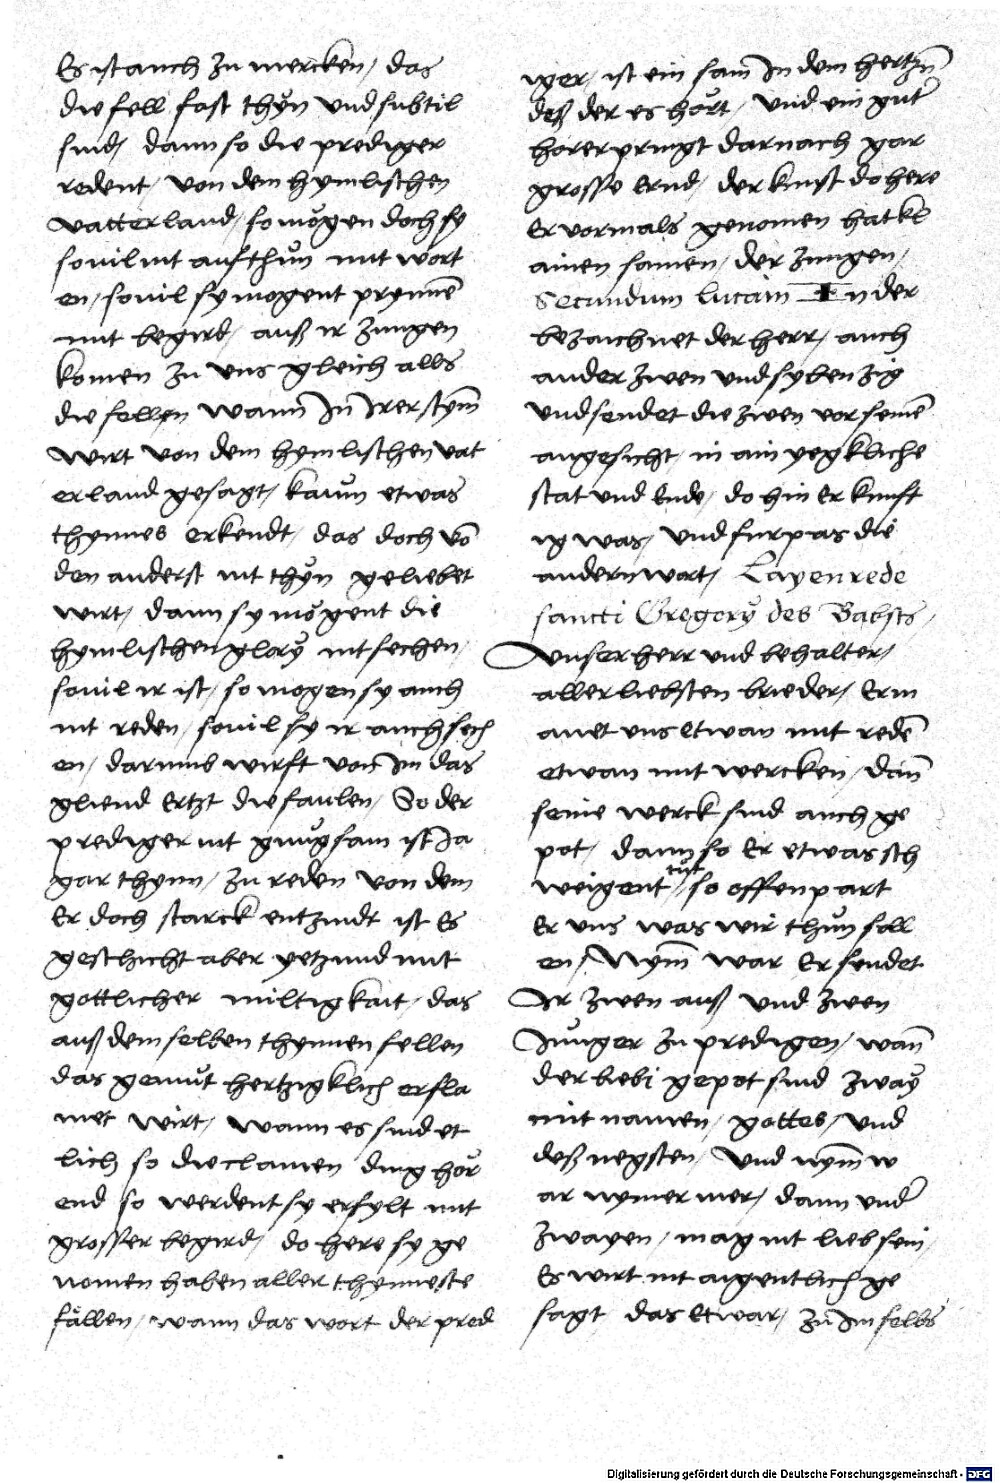 Es ist auch zu mercken / das
die fell fast thŭn vnd subtil
sind / dann so die prediger
redent / von dem hymlischen
vatterland / so mögen doch sy
souil nit aufthŭn mit wort
en / souil sy mogent prynnē
mit begird / auß ir zungen
komen zu vns gleich alls
die fellen wann In Irer stym̄
wirt von dem hymlischen vat
erland gesagt / kaŭm etwas
thynnes erkendt / das doch vō
den anderst nit thŭn geliebet
wirt / dann sy mögent die
hymlischen glory nit sechen /
souil ir ist / so mogen sy auch
nit reden / souil sy ir auch sech
en / darumb wirft von Im das
gliend Ertzt die faulen / So der
prediger nit gnŭgsam ist Ja
gar thynn / zu reden von dem
Er doch starck entzindt ist Es
geschicht aber yetzund mit
gottlicher miltigkait / das
auß dem selben thynnen fellen
das gemŭt hertzigklich erfla
met wirt / wann es sind et
lich so die clainen ding hör
end so werdent sy erfylt mit
grosser begird / do here sy ge
nomen haben aller thynneste
fällen / wann das wort der pred
iger / ist ein sam̄ In dem hertzn̄
deß der es hört / vnd ein gŭter
horer pringt darnach gar
grosse Ernd / der kunst do here
Er vormals genomen hat kl
ainen samen / der zungen /
Secundum lucam In der
bezaichnet der herr / auch
ander zwen vnd sybenzig
vnd sendet die zwen vor seinē
angesicht / in ain yegkliche
stat vnd Ende / do hin Er kunft
ig was / vnd furpas die
andern wort / Layenrede
sancti Gregory des Babsts /
Vnser herr vnd behalter /
allerliebsten brieder / Erm
anet vns Etwan mit redē
etwan mit wercken / dan̄
seine werck sind auch ge
pot / dann so Er etwas sch
weigent tŭt / so offenpart
Er vns was wir thŭn soll
en / Nym̄ war Er sendet
Ir zwen auß vnd zwen
Junger zu predigen / wan̄
der liebi gepot sind zway
mit namen / gottes / vnd
deß negsten / Vnd nym̄ w
ar nymer mer / dann vnder
zwayen / mag nit lieb sein /
Es wirt nit aigentlich ge
sagt das Etwar / zŭ Im selbs
Digitalisierung gefördert durch die Deutsche Forschungsgemeinschaft - DFG